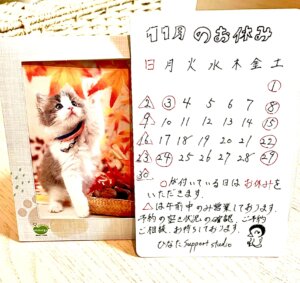 11月のお休み
日 月 火 水 木 金 土
1
2 3 4 5 6 7 8
9 10 11 12 13 14 15
16 17 18 19 20 21 22
23 24 25 26 27 28 29
30
○が付いている日はお休みを
いただきます。
△は午前中のみ営業しております。
予約の空き状況の確認、ご予約
ご相談、お待ちしております。
ひなたSupport studio